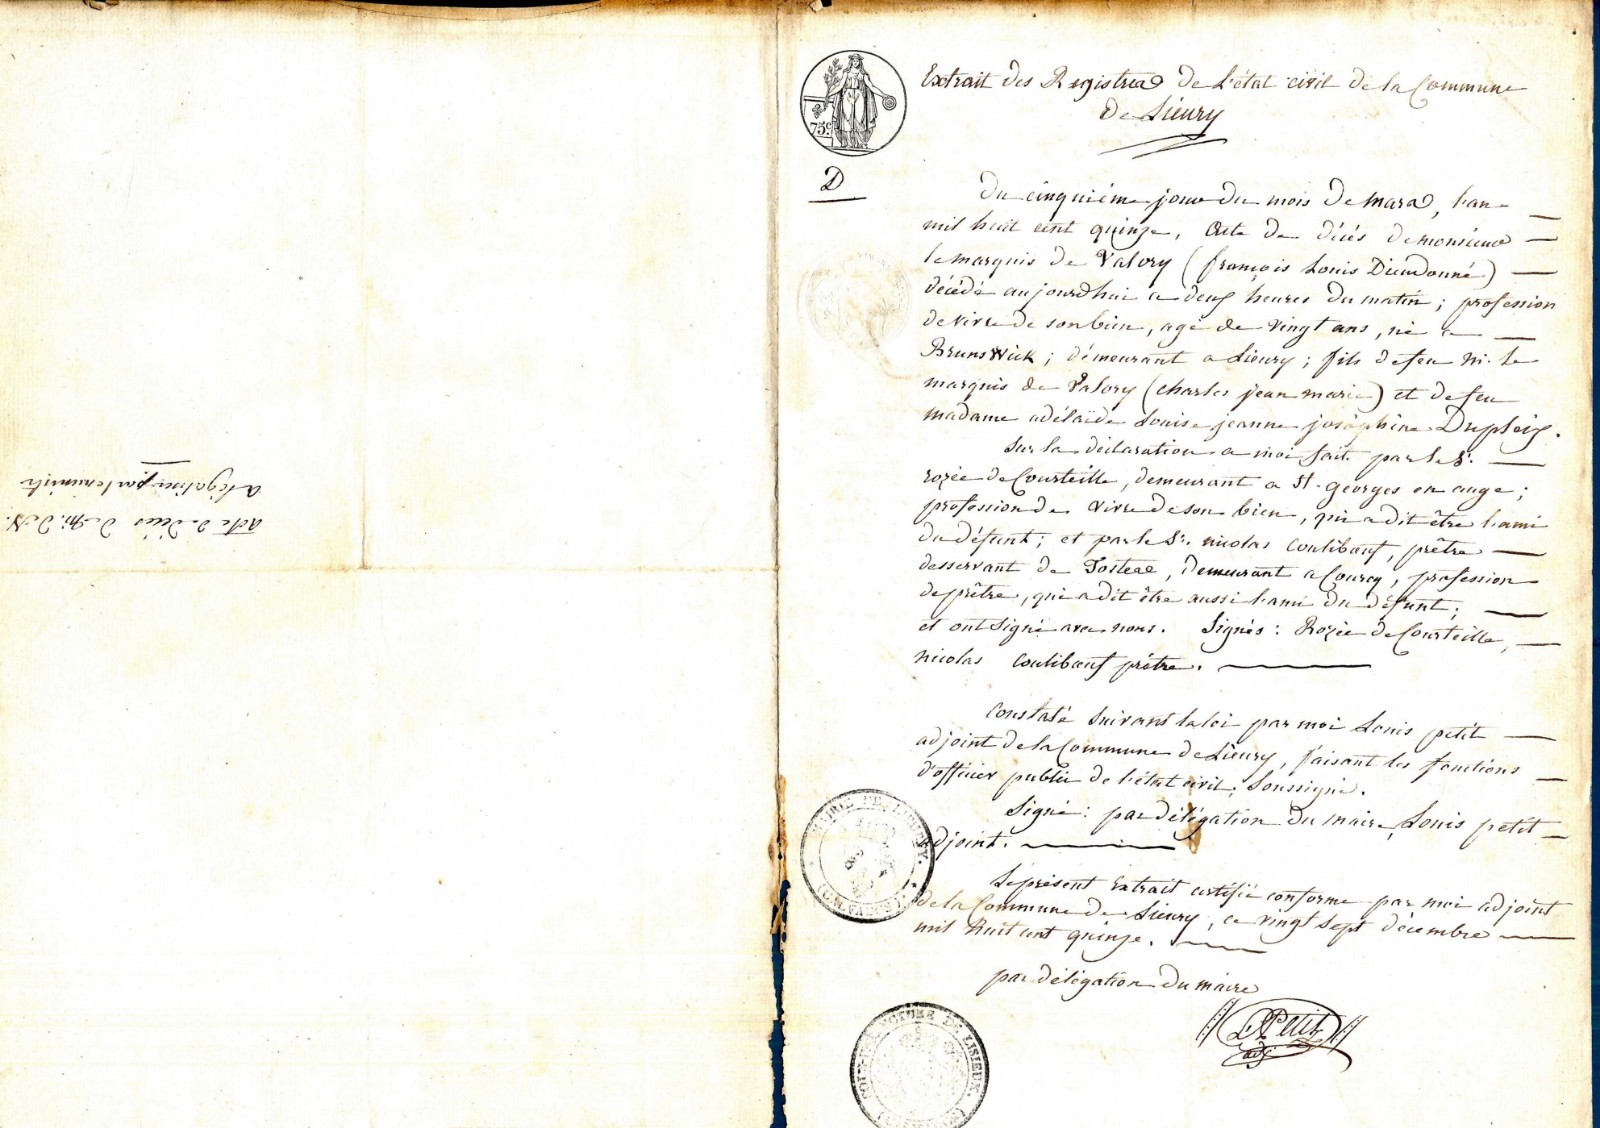 Extrait des Registres de L'état civil de la Commune
de Lieury
75c
D
Du cinquiéme jour du mois de mars, l'an
mil huit cent quinze, acte de décés de monsieur
le marquis de Valory (françois Louis Dieudonné)
décédé aujourdhui a deux heures du matin; profession
de vivre de son bien, agé de vingt ans, né a
Brunswick; démeurant a Lieury; fils de feu m. le
marquis de Valory (charles jean marie) et de feu
madame adélaïde Louise jeanne joséphine Dupleix.
Sur la déclaration a moi fait par le Sr.
rozée de Courteille, demeurant a St. georges en auge;
profession de vivre de son bien, qui a dit être l'ami
du défunt; et par le Sr. nicolas coulibœuf, prêtre
desservant de Tostes, demeurant a Courcy, profession
de prêtre, qui a dit être aussi l'ami du défunt;
et ont signé avec nous. Signés: Rozée de Courteille,
nicolas coulibœuf prêtre.
Constaté suivant la loi par moi Louis petit
adjoint de la Commune de Lieury, faisant les fonctions
d'officier public de l'état civil, soussigné.
Signé: par délégation du maire, Louis petit
adjoint.
MAIRIE DE LIEURY.
Le présent Extrait certifié conforme par moi adjoint
de la Commune de Lieury, ce vingt sept décembre
mil huit cent quinze.
par délégation du maire
L. Petit
adj
DE LISIEUX
acte de décés de Mr. de V.
a légaliser par le ministre